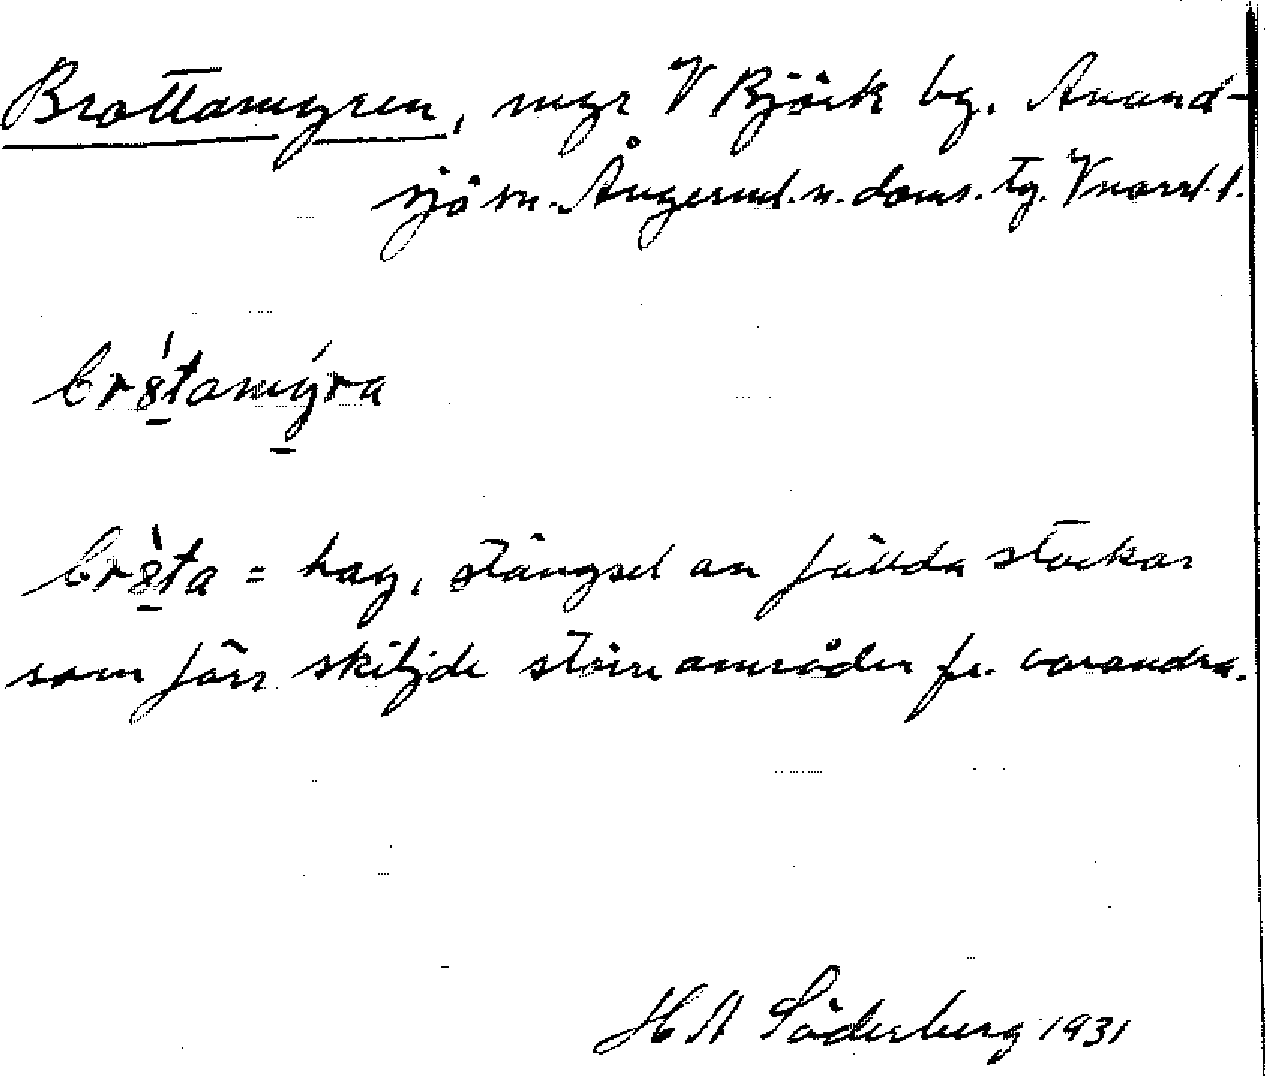 Brattamyren, myr V Björk by. Anund-
sjö sn. Ångerml. n. doms. tg. Vnorrl. l.
br8̲́tamýra
br8̲̀ta = hag, stängsel av fällda stockar
som förr skiljde större områden fr. varandra.
H A Söderberg 1931